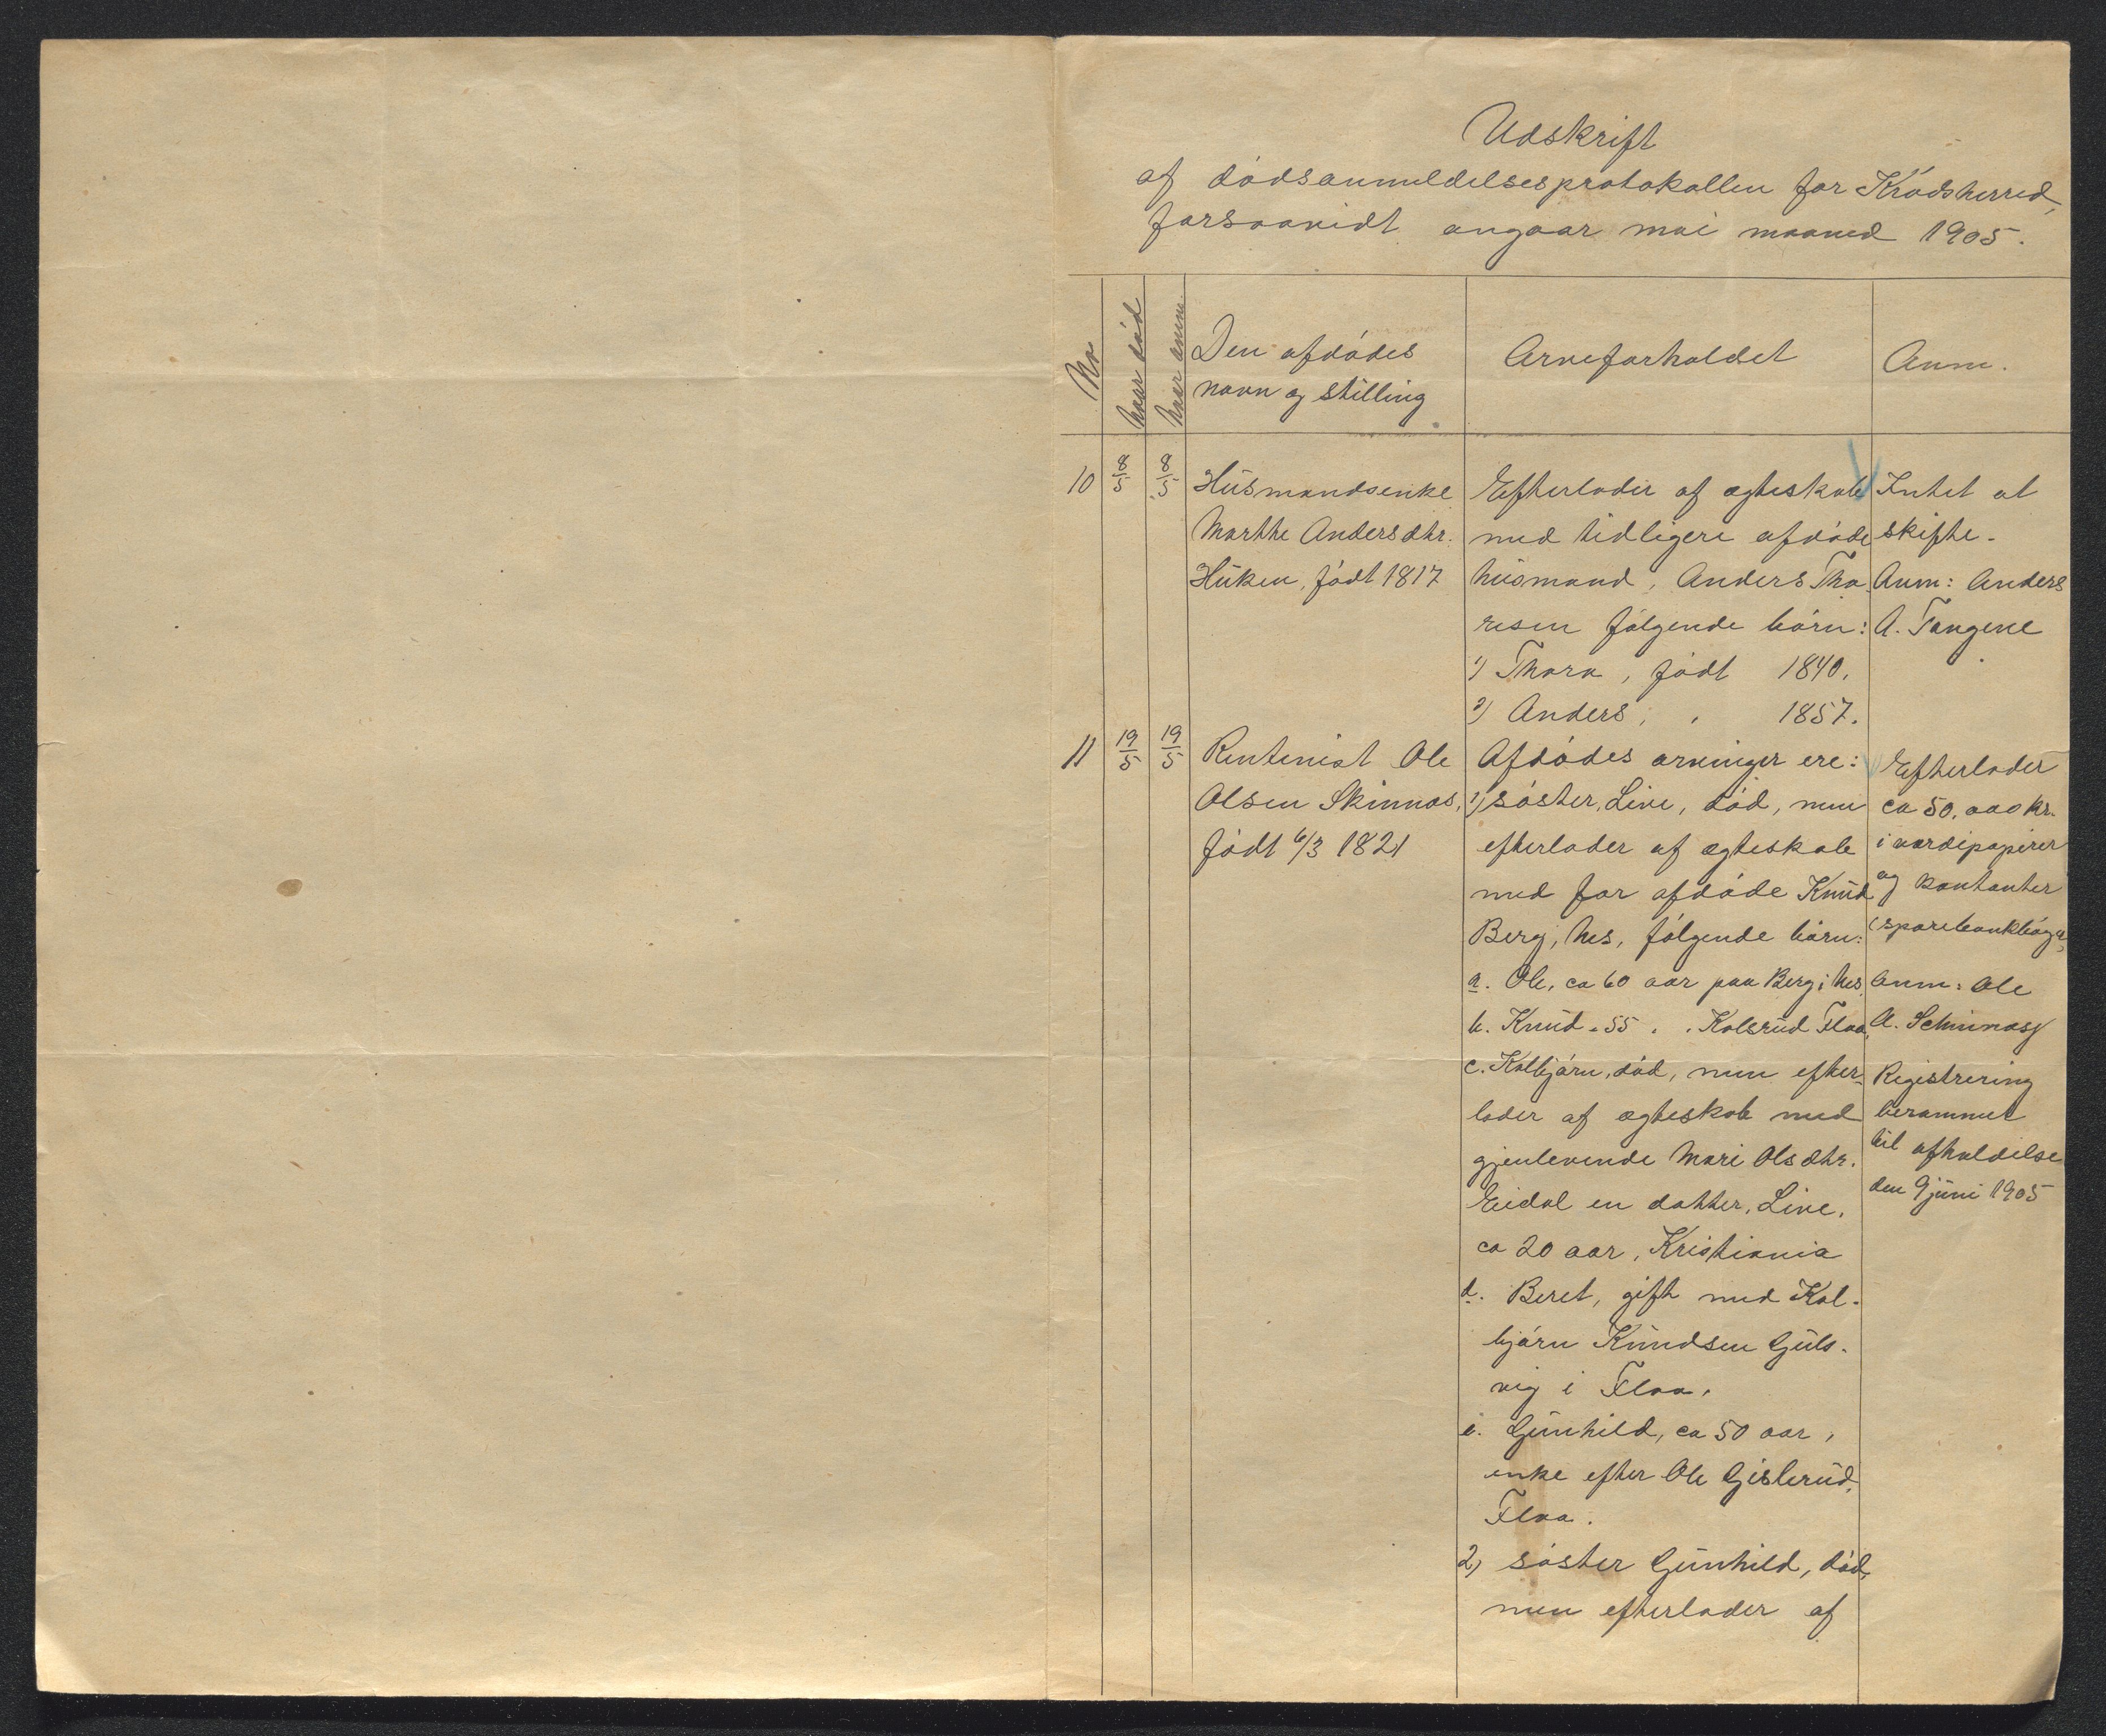 Udskrift
af dødsanmeldelsesprotokollen for Krødsherred,
forsaavidt angaar mai maaned 1905.
No
Naar død
Naar anm.
Den afdødes
navn og stilling
Arveforholdet
Anm.
10
8/5
8/5
Husmandsenke
Marthe Andersdtr.
Huken, født 1817
Efterlader af ægteskab
med tidligere afdøde
husmand, Anders Tho-
resen følgende børn:
1) Thora, født 1840.
2) Anders, " 1857.
Intet at
skifte.
Anm: Anders
A. Tangene
11
19/5
19/5
Rentenist Ole
Olsen Skinnæs,
født 6/3 1821
Afdødes arvinger ere:
1) søster, Live, død, men
efterlader af ægteskab
med før afdøde Knud
Berg, Nes, følgende børn:
a. Ole, ca 60 aar paa Berg i Nes,
b. Knud " 55 " " Kolsrud Flaa,
c. Kolbjørn, død, men efter-
lader af ægteskab med
gjenlevende Mari Olsdtr.
Eidal en datter, Live,
ca 20 aar, Kristiania
d. Beret, gift med Kol-
bjørn Knudsen Guls-
vig i Flaa,
e. Gunhild, ca 50 aar,
enke efter Ole Gislerud,
Flaa.
2) søster Gunhild, død,
men efterlader af
Efterlader
ca 50,000 kr.
i værdipapirer
og kontanter
(sparebankbøger)
Anm: Ole
A. Schinnæs
Registrering
berammet
til afholdelse
den 9 juni 1905